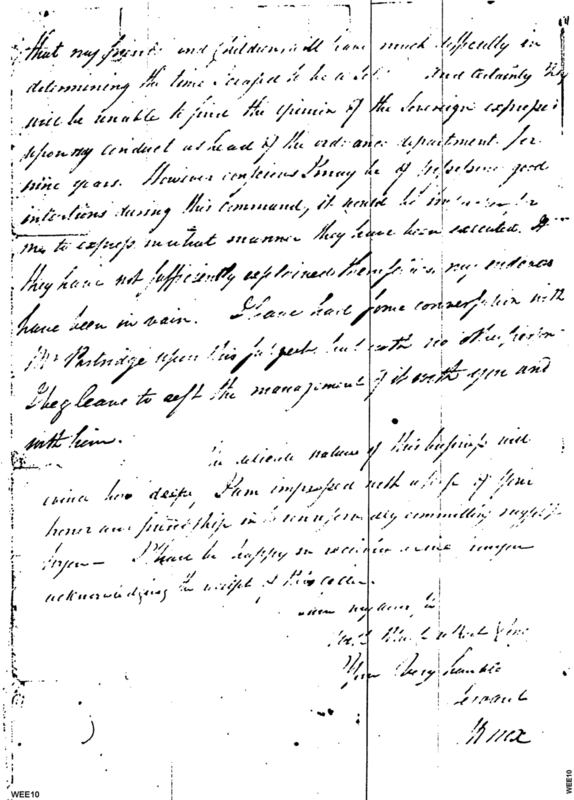 that my friends and Children will have much difficulty in
determining the time I ceased to be a and certainly they
will be unable to find the opinion of the Sovereign expressed
upon my conduct as head of the ordnance department for
nine years. However conscious I may be of possessing good
intentions during this command, it would be for
me to express in what manner they have been executed. If
they have not sufficiently explained themselves my endeavors
have been in vain. I have had some conversation with
Mr Partridge upon this subject but with no other person
I beg leave to rest the management of it with you and
with him.
The delicate nature of this business will
evince how deeply I am impressed with a sense of your
honor and friendship in committing myself
to you — I shall be happy in receiving a line
acknowledging the receipt of this letter.
I am my dear Sir

Your Very humble
Servant
HKnox
WEE10
WEE10